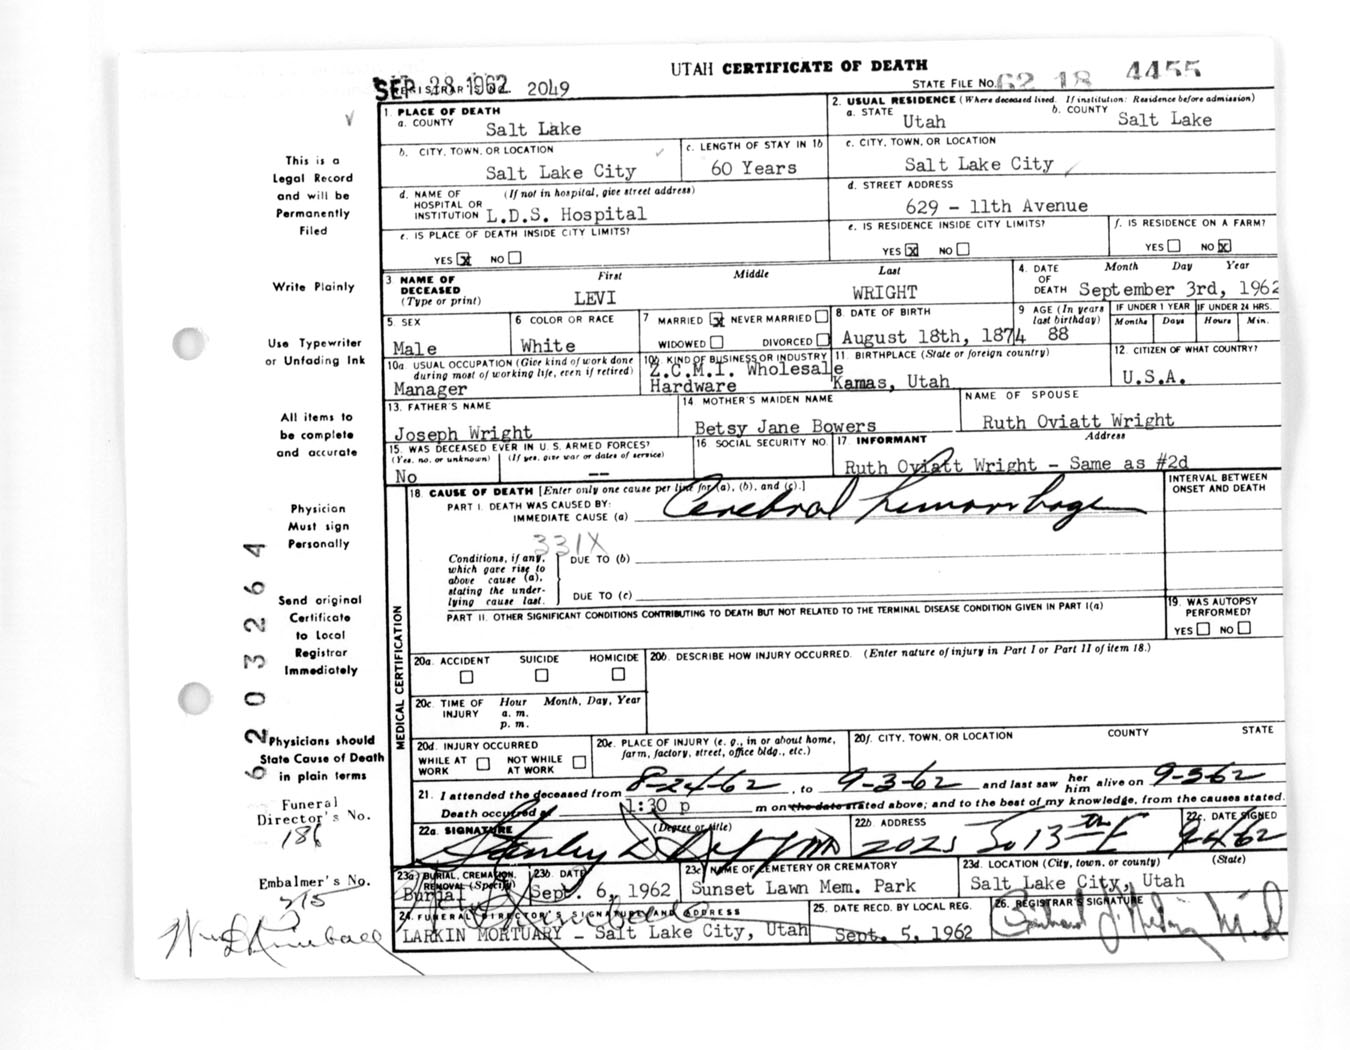 UTAH CERTIFICATE OF DEATH
SEP 28 1962 2049
STATE FILE NO. 62 18 4455
1. PLACE OF DEATH
a. COUNTY Salt Lake
2. USUAL RESIDENCE (Where deceased lived. If institution: Residence before admission)
a. STATE Utah b. COUNTY Salt Lake
b. CITY, TOWN, OR LOCATION Salt Lake City
c. LENGTH OF STAY IN 1b 60 Years
c. CITY, TOWN, OR LOCATION
Salt Lake City
d. NAME OF HOSPITAL OR INSTITUTION (If not in hospital, give street address)
L.D.S. Hospital
d. STREET ADDRESS
629 - 11th Avenue
e. IS PLACE OF DEATH INSIDE CITY LIMITS?
YES x NO
e. IS RESIDENCE INSIDE CITY LIMITS?
YES x NO
f. IS RESIDENCE ON A FARM?
YES NO x
3 NAME OF DECEASED (Type or print)
First Middle Last
LEVI WRIGHT
4. DATE OF DEATH Month Day Year
September 3rd, 1962
5. SEX
Male
6 COLOR OR RACE
White
7 MARRIED x NEVER MARRIED
WIDOWED DIVORCED
8. DATE OF BIRTH
August 18th, 1874
9 AGE (In years last birthday)
88
IF UNDER 1 YEAR IF UNDER 24 HRS.
Months Days Hours Min.
10a. USUAL OCCUPATION (Give kind of work done during most of working life, even if retired)
Manager
10b. KIND OF BUSINESS OR INDUSTRY
Z.C.M.I. Wholesale
Hardware
11. BIRTHPLACE (State or foreign country)
Kamas, Utah
12. CITIZEN OF WHAT COUNTRY?
U.S.A.
13. FATHER'S NAME
Joseph Wright
14 MOTHER'S MAIDEN NAME
Betsy Jane Bowers
NAME OF SPOUSE
Ruth Oviatt Wright
15. WAS DECEASED EVER IN U.S. ARMED FORCES?
(Yes, no, or unknown) (If yes, give war or dates of service)
No --
16. SOCIAL SECURITY NO.
17. INFORMANT Address
Ruth Oviatt Wright - Same as #2d
MEDICAL CERTIFICATION
18. CAUSE OF DEATH [Enter only one cause per line for (a), (b), and (c).]
PART I. DEATH WAS CAUSED BY:
IMMEDIATE CAUSE (a) Cerebral hemorrhage
INTERVAL BETWEEN ONSET AND DEATH
331X
Conditions, if any, which gave rise to above cause (a), stating the underlying cause last.
DUE TO (b)
DUE TO (c)
PART II. OTHER SIGNIFICANT CONDITIONS CONTRIBUTING TO DEATH BUT NOT RELATED TO THE TERMINAL DISEASE CONDITION GIVEN IN PART I(a)
19. WAS AUTOPSY PERFORMED?
YES NO
20a. ACCIDENT SUICIDE HOMICIDE
20b. DESCRIBE HOW INJURY OCCURRED. (Enter nature of injury in Part I or Part II of item 18.)
20c. TIME OF INJURY Hour a. m. p. m. Month, Day, Year
20d. INJURY OCCURRED
WHILE AT WORK NOT WHILE AT WORK
20e. PLACE OF INJURY (e. g., in or about home, farm, factory, street, office bldg., etc.)
20f. CITY, TOWN, OR LOCATION COUNTY STATE
21. I attended the deceased from 8-24-62, to 9-3-62 and last saw her him alive on 9-3-62
Death occurred at 1:30 p m on the date stated above; and to the best of my knowledge, from the causes stated.
22a. SIGNATURE (Degree or title)
Stanley MD
22b. ADDRESS
2025 So 13th E
22c. DATE SIGNED
9-4-62
23a. BURIAL, CREMATION, REMOVAL (Specify)
Burial
23b. DATE
Sept. 6, 1962
23c. NAME OF CEMETERY OR CREMATORY
Sunset Lawn Mem. Park
23d. LOCATION (City, town, or county) (State)
Salt Lake City, Utah
24. FUNERAL DIRECTOR'S SIGNATURE AND ADDRESS
LARKIN MORTUARY - Salt Lake City, Utah
25. DATE RECD. BY LOCAL REG.
Sept. 5, 1962
26. REGISTRAR'S SIGNATURE
This is a
Legal Record
and will be
Permanently
Filed
Write Plainly
Use Typewriter
or Unfading Ink
All items to
be complete
and accurate
Physician
Must sign
Personally
Send original
Certificate
to Local
Registrar
Immediately
Physicians should
State Cause of Death
in plain terms
Funeral
Director's No.
186
Embalmer's No.
215
Wm D Kimball
62 032264